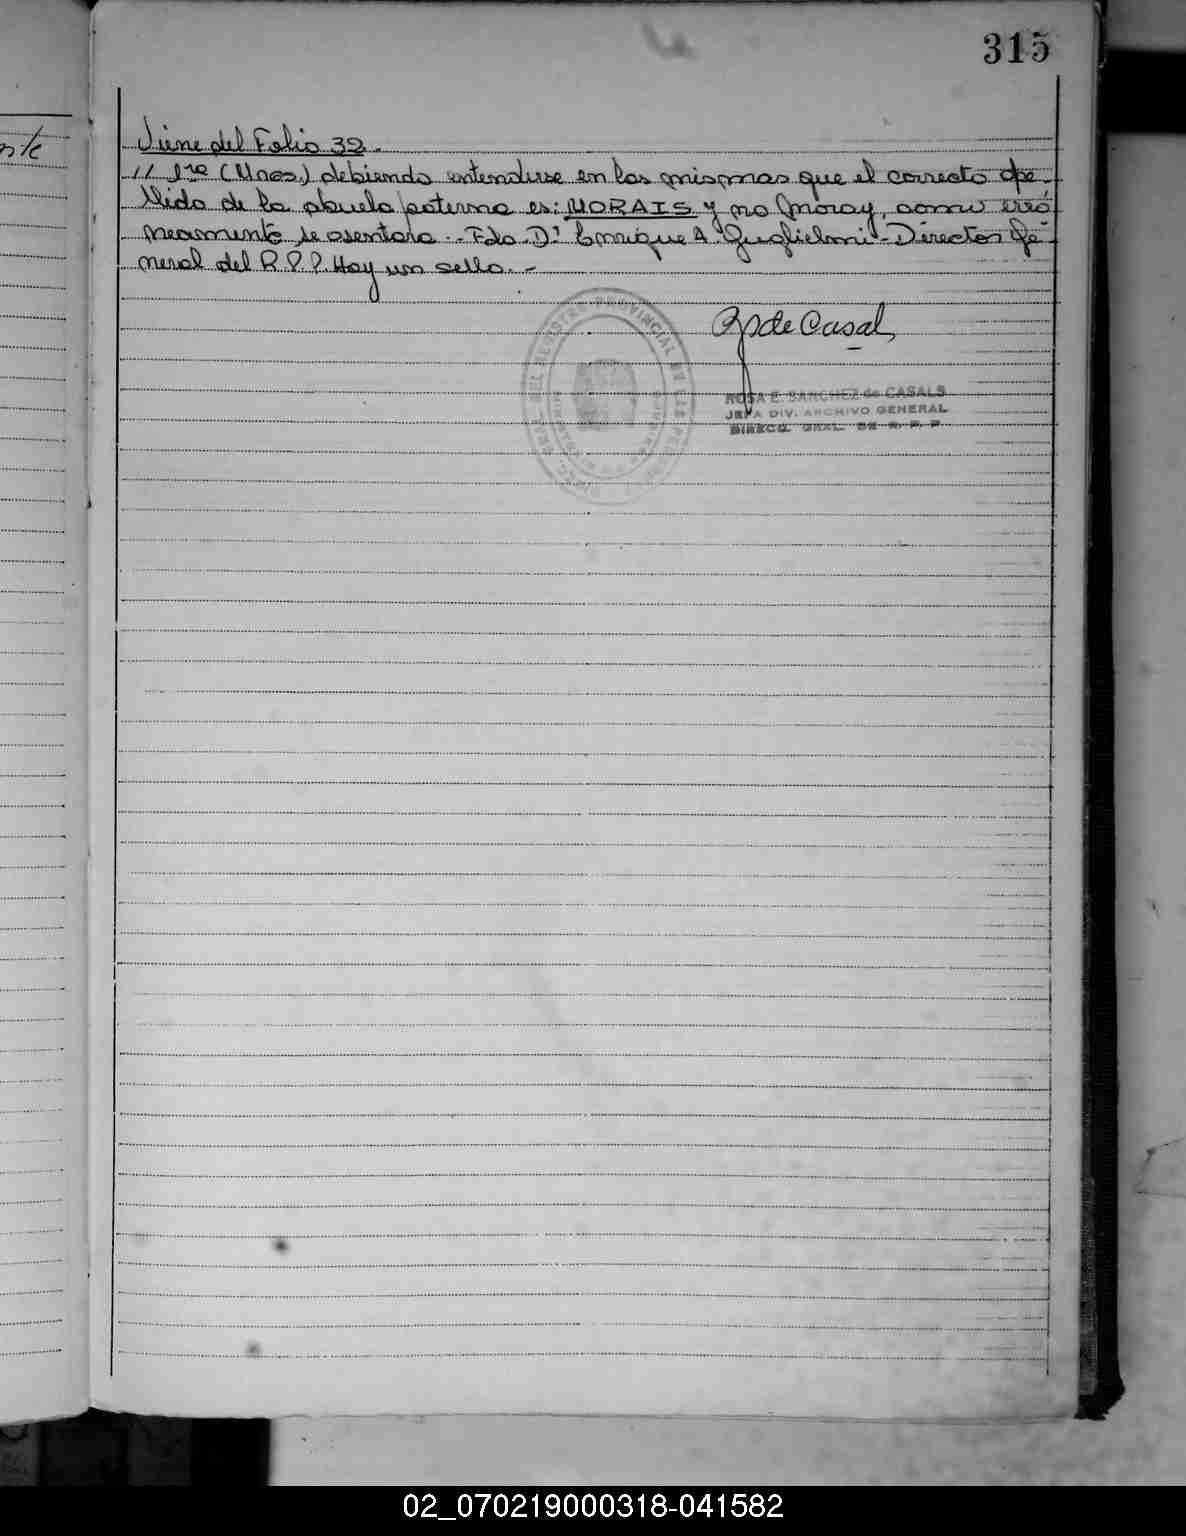 315
Viene del Folio 32.-
// 1ra (Unoa.) debiendo entenderse en las mismas que el correcto ape
llido de la abuela paterna es: MORAIS y no Moray, como erró
neamente se asentara.- Fdo. Dr. Enrique A. Guglielmi - Director Ge
neral del R.P.P. Hay un sello.-
de Casal
ROSA E. SANCHEZ de CASALS
JEFA DIV. ARCHIVO GENERAL
DIRECC. GRAL. DE R. P. P.
DEL REGISTRO PROVINCIAL DE LAS
02_070219000318-041582